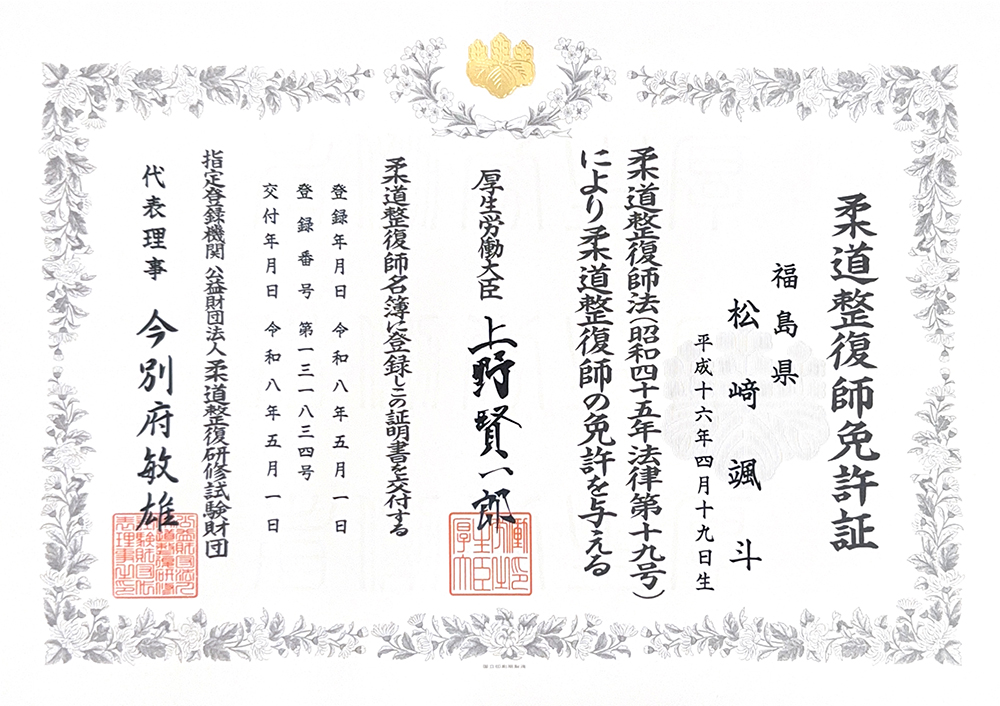 柔道整復師免許証
福島県
松﨑颯斗
平成十六年四月十九日生
柔道整復師法(昭和四十五年法律第十九号)
により柔道整復師の免許を与える
厚生労働大臣 上野賢一郎
柔道整復師名簿に登録しこの証明書を交付する
登録年月日 令和八年五月一日
登録番号 第一三一八三四号
交付年月日 令和八年五月一日
指定登録機関 公益財団法人 柔道整復研修試験財団
代表理事 今別府敏雄